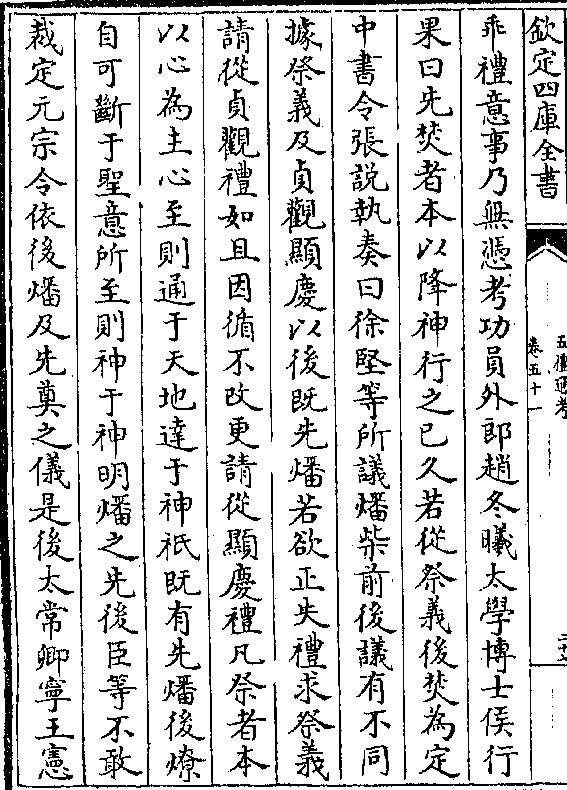 欽定四庫全書
五禮通考
卷五十一
乖禮意事乃無憑考功員外郎趙冬曦太學博士侯行
果曰先焚者本以降神行之已久若從祭義後焚為定
中書令張說執奏曰徐堅等所議燔柴前後議有不同
據祭義及貞觀顯慶以後既先燔若欲正失禮求祭義
請從貞觀禮如且因循不改更請從顯慶禮凡祭者本
以心為主心至則通于天地達于神祇既有先燔後燎
自可斷于聖意所至則神于神明燔之先後臣等不敢
裁定元宗令依後燔及先奠之儀是後太常卿寧王憲